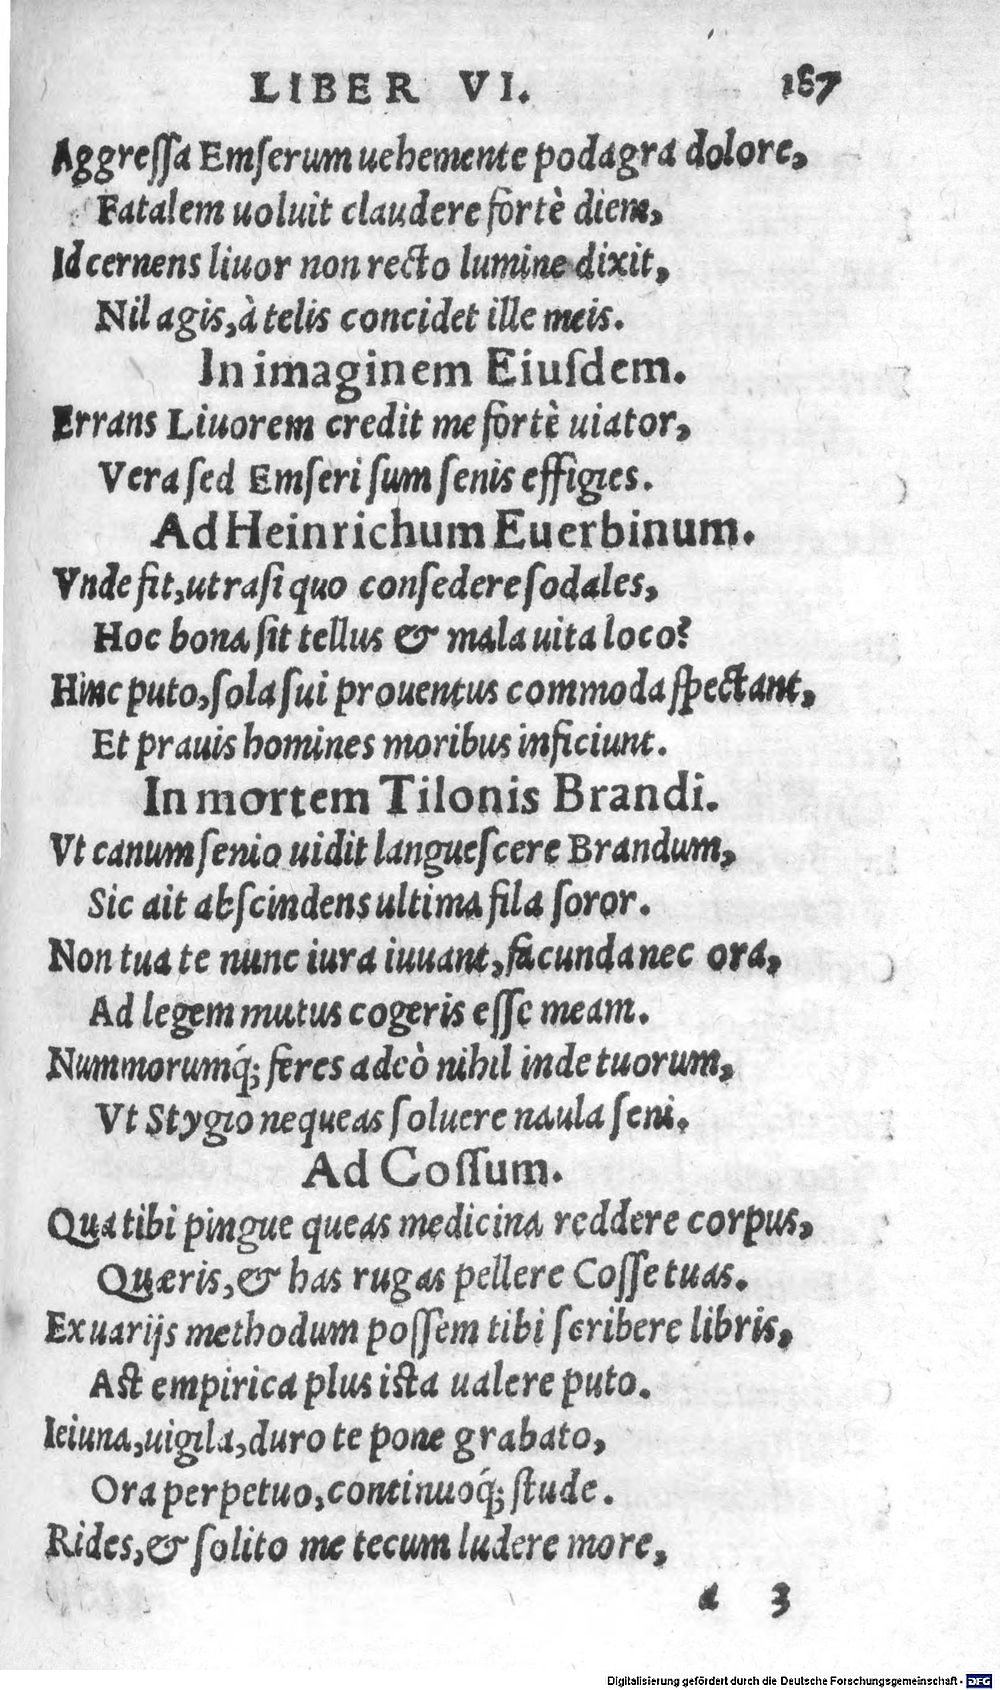 LIBER VI. 187
Aggreſſa Emſerum uehemente podagra dolore,
Fatalem uoluit claudere fortè diem,
Id cernens liuor non recto lumine dixit,
Nil agis, à telis concidet ille meis.
In imaginem Eiuſdem.
Errans Liuorem credit me fortè uiator,
Vera ſed Emſeri ſum ſenis effigies.
Ad Heinrichum Euerbinum.
Vnde fit, ut raſi quo conſedere ſodales,
Hoc bona ſit tellus & mala uita loco?
Hinc puto, ſola ſui prouentus commoda ſpectant,
Et prauis homines moribus inficiunt.
In mortem Tilonis Brandi.
Vt canum ſenio uidit langueſcere Brandum,
Sic ait abſcindens ultima fila ſoror.
Non tua te nunc iura iuuant, facunda nec ora,
Ad legem mutus cogeris eſſe meam.
Nummorumq́; feres adeò nihil inde tuorum,
Vt Stygio nequeas ſoluere naula ſeni.
Ad Coſſum.
Qua tibi pingue queas medicina reddere corpus,
Quæris, & has rugas pellere Coſſe tuas.
Ex uarijs methodum poſſem tibi ſcribere libris,
Aſt empirica plus iſta ualere puto.
Ieiuna, uigila, duro te pone grabato,
Ora perpetuo, continuoq́; ſtude.
Rides, & ſolito me tecum ludere more,
a 3
Digitalisierung gefördert durch die Deutsche Forschungsgemeinschaft - DFG